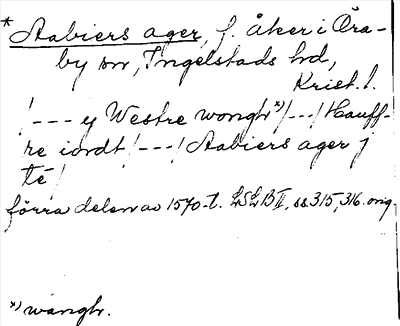 * Aabiers ager, f. åker i Öra-
by sn, Ingelstads hd,
Krist. l.
/--- y Westre wongh*)/---/ Hauff-
re iordt /---/ Aabiers ager j
té/
förra delen av 1570-t. LSLB II, ss. 315, 316. orig.
*) wangh.